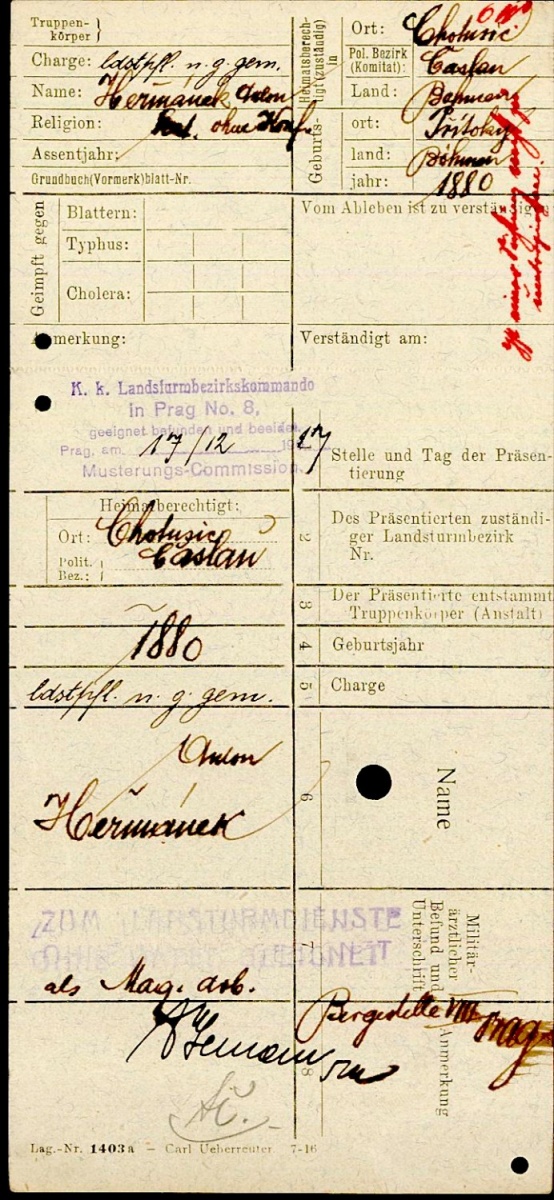 Truppen-
körper
Charge: ldstpfl. n. g. gem.
Name: Heřmánek Anton
Religion: ohne Konf.
Assentjahr:
Grundbuch(Vormerk)blatt-Nr.
Heimatsberech-
tigt (zuständig)
in
Ort: Chotusic
Pol. Bezirk
(Komitat): Časlau
Land: Böhmen
Geburts-
ort: Přítoky
land: Böhmen
jahr: 1880
Geimpft gegen
Blattern:
Typhus:
Cholera:
Vom Ableben ist zu verständigen
Anmerkung:
Verständigt am:
K. k. Landsturmbezirkskommando
in Prag No. 8,
geeignet befunden und beeidet.
Prag, am 17/12 19 17
Musterungs-Commission.
Stelle und Tag der Präsen-
tierung
Heimatberechtigt:
Ort: Chotusic
Polit.
Bez.: Časlau
2
Des Präsentierten zuständi-
ger Landsturmbezirk
Nr.
3
Der Präsentierte entstammt
Truppenkörper (Anstalt)
1880
4
Geburtsjahr
ldstpfl. n. g. gem.
5
Charge
Anton
Heřmánek
6
Name
ZUM LANDSTURMDIENSTE
OHNE WAFFE GEEIGNET
als Mag. arb.
7
Militär-
ärztlicher
Befund und
Unterschrift
8
Anmerkung
Bergestelle VIII Prag
Lag.-Nr. 1403a – Carl Ueberreuter 7-16